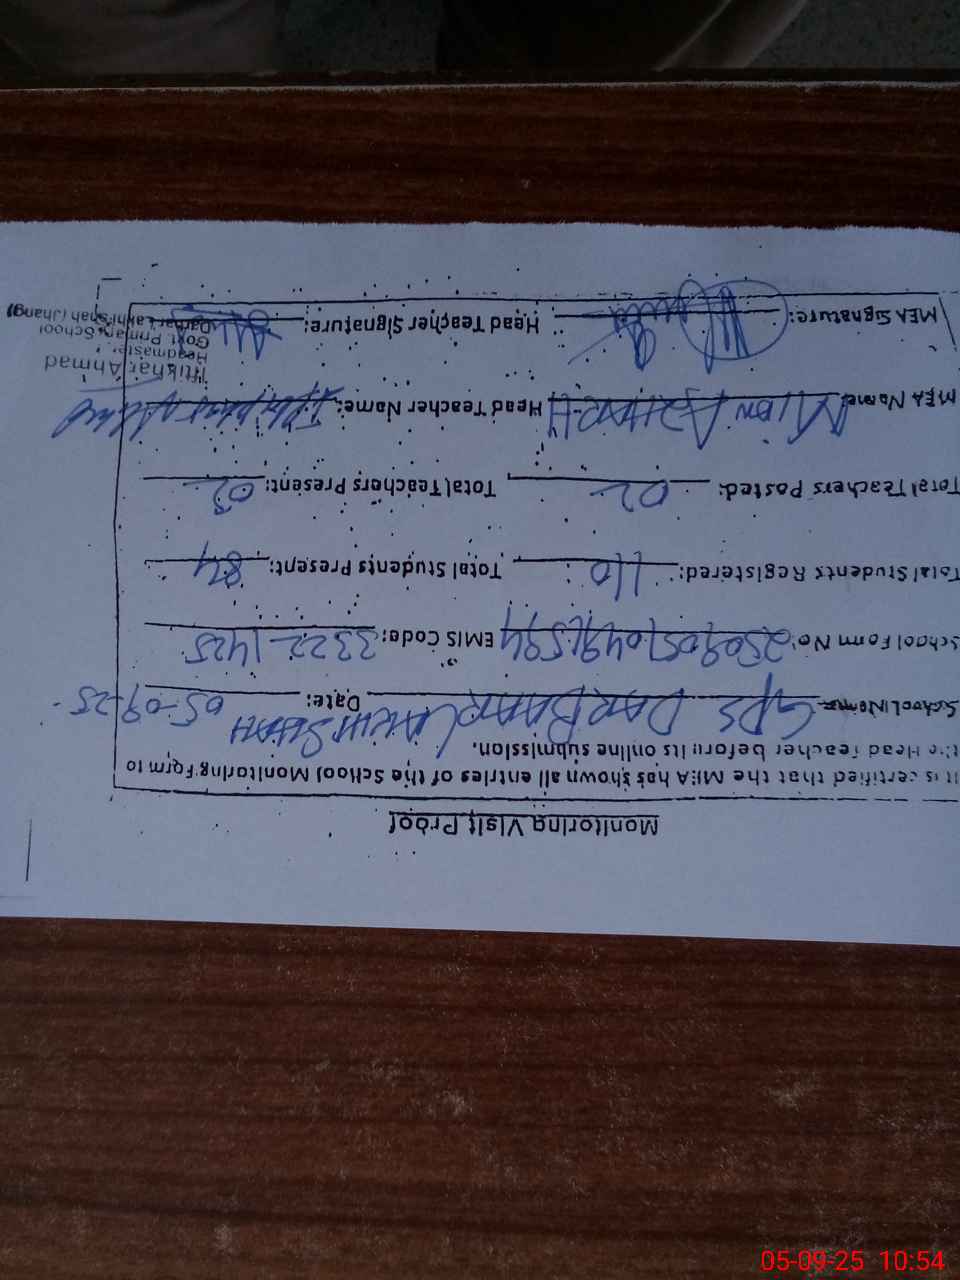 Monitoring Visit Proof
It is certified that the MEA has shown all entries of the School Monitoring Form to
the Head Teacher before its online submission.
School Name GPS DARBAAR LAKHI SHAH Date: 05-09-25
School Form No: EMIS Code: 33221425
Total Students Registered: 110 Total Students Present: 84
Total Teachers Posted: 02 Total Teachers Present: 02
MEA Name: Mian AZHAR H Head Teacher Name: Iftikhar Ahmad
MEA Signature: Head Teacher Signature:
Iftikhar Ahmad
Headmaster
Govt. Primary School
Darbar Lakhi Shah (Jhang)
05-09-25 10:54